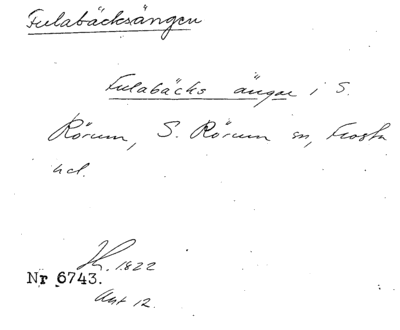 Fulabäcksängen
Fulabäcks ängar i S.
Rörum, S. Rörum sn, Frosta
hd.
1822
Nr 6743.
Akt 12.